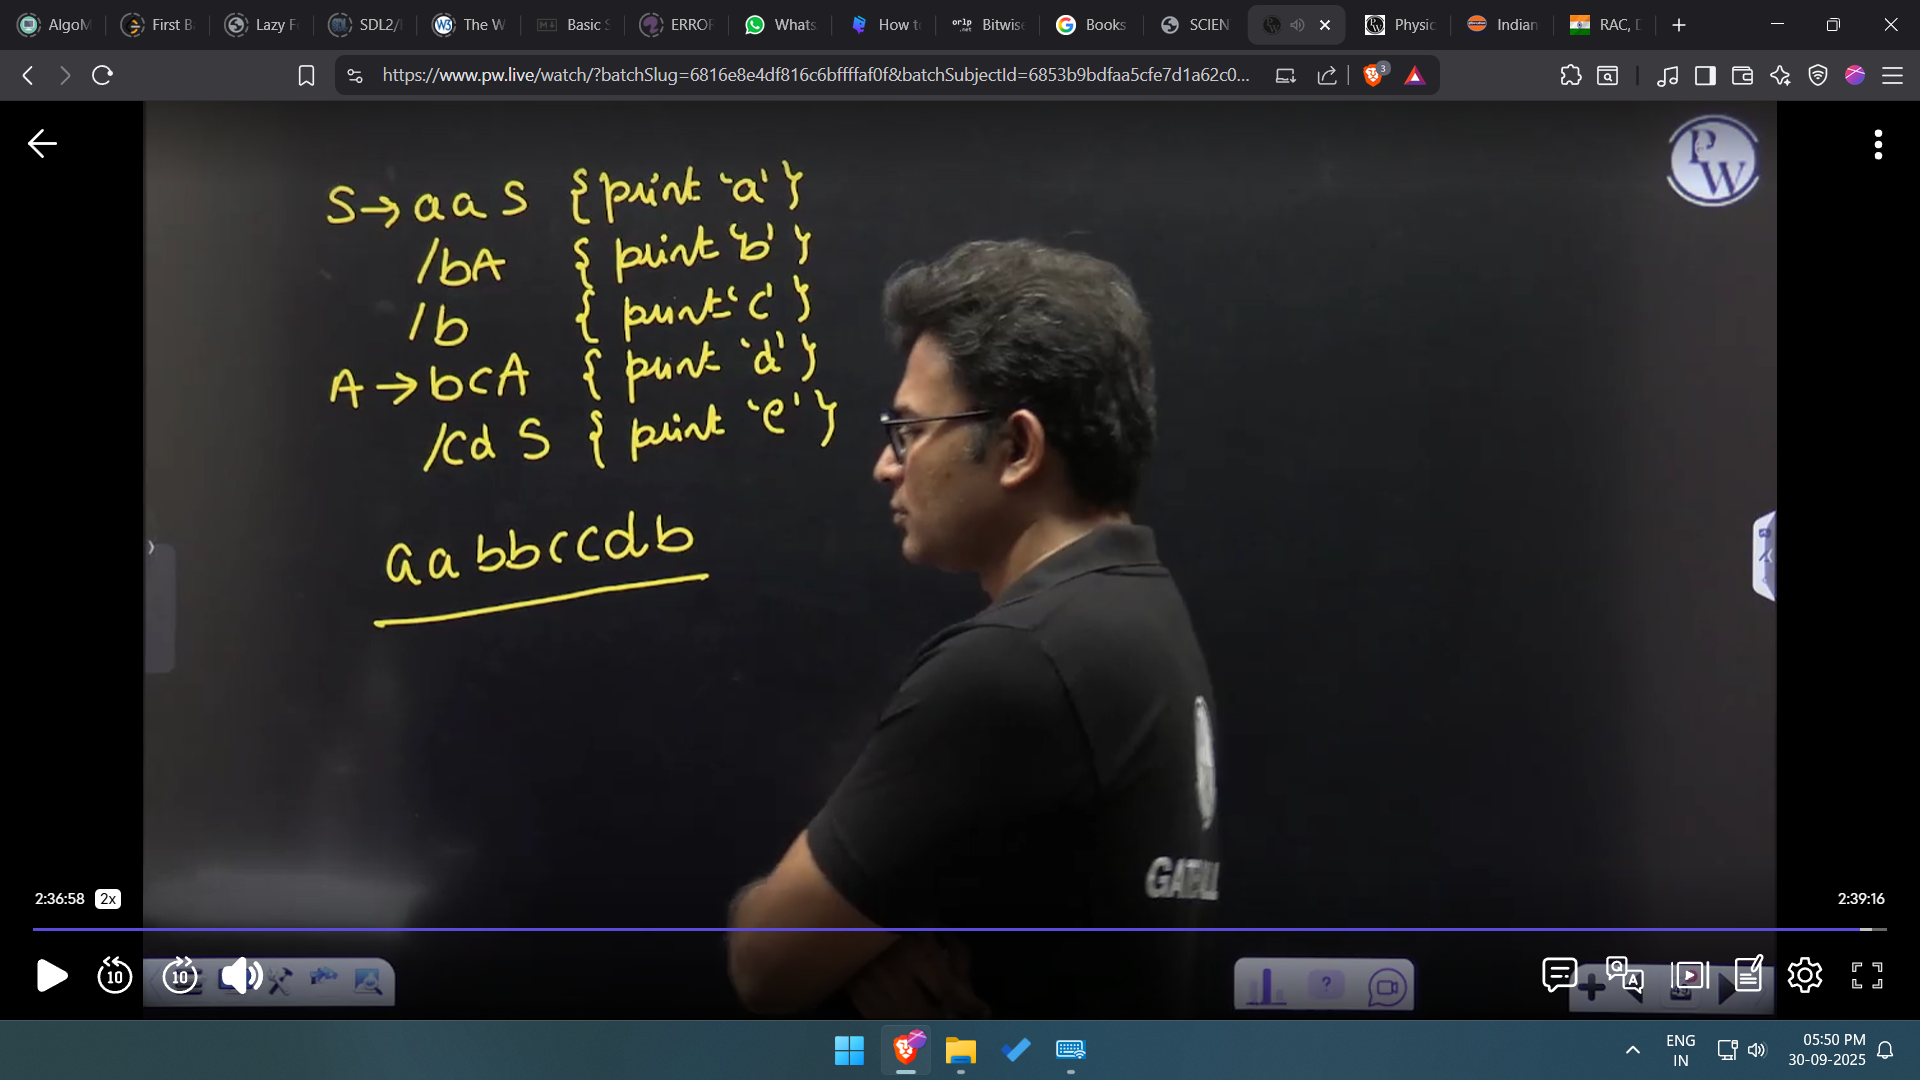 AlgoM
First B
Lazy F
SDL2/
The W
Basic S
ERROR
Whats
How t
Bitwise
Books
SCIEN
Physic
Indian
RAC, D
https://www.pw.live/watch/?batchSlug=6816e8e4df816c6bffffaf0f&batchSubjectId=6853b9bdfaa5cfe7d1a62c0...
3
PW
S→aaS {print 'a'}
/bA {print 'b'}
/b {print 'c'}
A→bcA {print 'd'}
/cdS {print 'e'}
aabbccdb
2:36:58 2x
2:39:16
10
10
ENG
IN
05:50 PM
30-09-2025